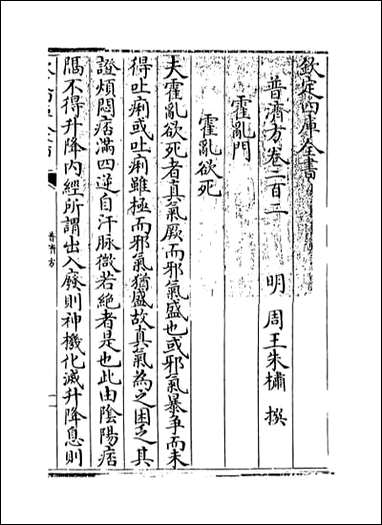 欽定四庫全書
普濟方卷二百三
明　周王朱橚　撰
霍亂門
霍亂欲死
夫霍亂欲死者真氣厥而邪氣盛也或邪氣暴爭而未
得吐痢或吐痢雖極而邪氣猶盛故真氣為之困乏其
證煩悶痞滿四逆自汗脉微若絶者是也此由陰陽痞
隔不得升降内經所謂出入廢則神機化滅升降息則
普濟方